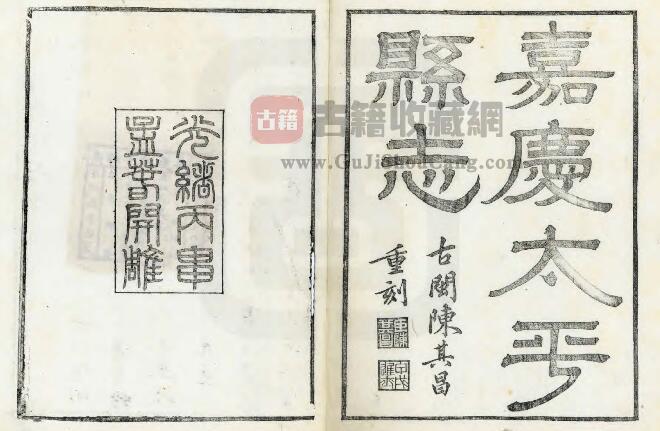 嘉慶太平
縣志
古閩陳其昌
重刻
光緒丙申
孟春開雕
古籍
古籍收藏網
www.GuJiShouCang.com